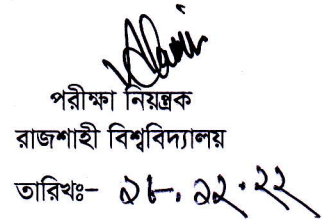 পরীক্ষা নিয়ন্ত্রক
রাজশাহী বিশ্ববিদ্যালয়
তারিখঃ- ২৮.১২.২২